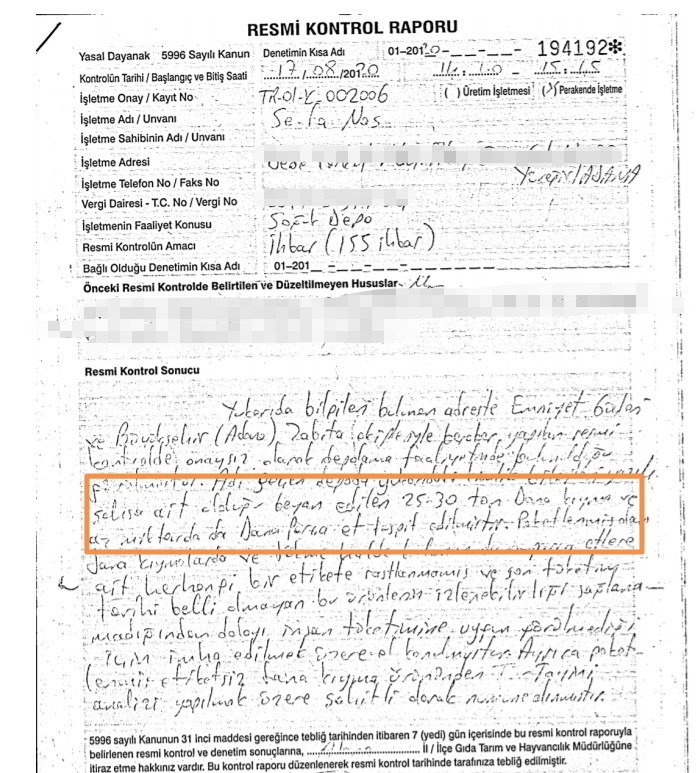 RESMİ KONTROL RAPORU
Yasal Dayanak 5996 Sayılı Kanun Denetimin Kısa Adı 01-2020-__-__-__- 194192*
Kontrolün Tarihi / Başlangıç ve Bitiş Saati 17/08/2020 14:10 - 15:45
İşletme Onay / Kayıt No TR-01-K-002006 ( ) Üretim İşletmesi (X) Perakende İşletme
İşletme Adı / Unvanı Se-Fa Nas
İşletme Sahibinin Adı / Unvanı
İşletme Adresi
İşletme Telefon No / Faks No Yüreğir/ADANA
Vergi Dairesi - T.C. No / Vergi No
İşletmenin Faaliyet Konusu Soğuk Depo
Resmi Kontrolün Amacı İhbar (155 ihbar)
Bağlı Olduğu Denetimin Kısa Adı 01-201__-__-__-__-
Önceki Resmi Kontrolde Belirtilen ve Düzeltilmeyen Hususlar
Resmi Kontrol Sonucu
Yukarıda bilgileri bulunan adreste Emniyet Güçleri
ve Büyükşehir (Adana) Zabıta ekipleriyle beraber yapılan resmi
kontrolde onaysız olarak depolama faaliyetinde bulunulduğu
görülmüştür. Adı geçen depoda yukarıdaki
şahısa ait olduğu beyan edilen 25-30 ton Dana kıyma ve
az miktarda da Dana parça et tespit edilmiştir. Paketlenmiş olan
dana kıymalarda ve etlere
ait herhangi bir etikete rastlanmamış ve son tüketim
tarihi belli olmayan bu ürünlerin izlenebilirliği sağlana-
madığından dolayı insan tüketimine uygun görülmediği
için imha edilmek üzere el konulmuştur. Ayrıca paket-
lenmiş etiketsiz dana kıyma ürününden T. Tayini
analizi yapılmak üzere şahitli olarak numune alınmıştır.
5996 sayılı Kanunun 31 inci maddesi gereğince tebliğ tarihinden itibaren 7 (yedi) gün içerisinde bu resmi kontrol raporuyla
belirlenen resmi kontrol ve denetim sonuçlarına, İl / İlçe Gıda Tarım ve Hayvancılık Müdürlüğüne
itiraz etme hakkınız vardır. Bu kontrol raporu düzenlenerek resmi kontrol tarihinde tarafınıza tebliğ edilmiştir.